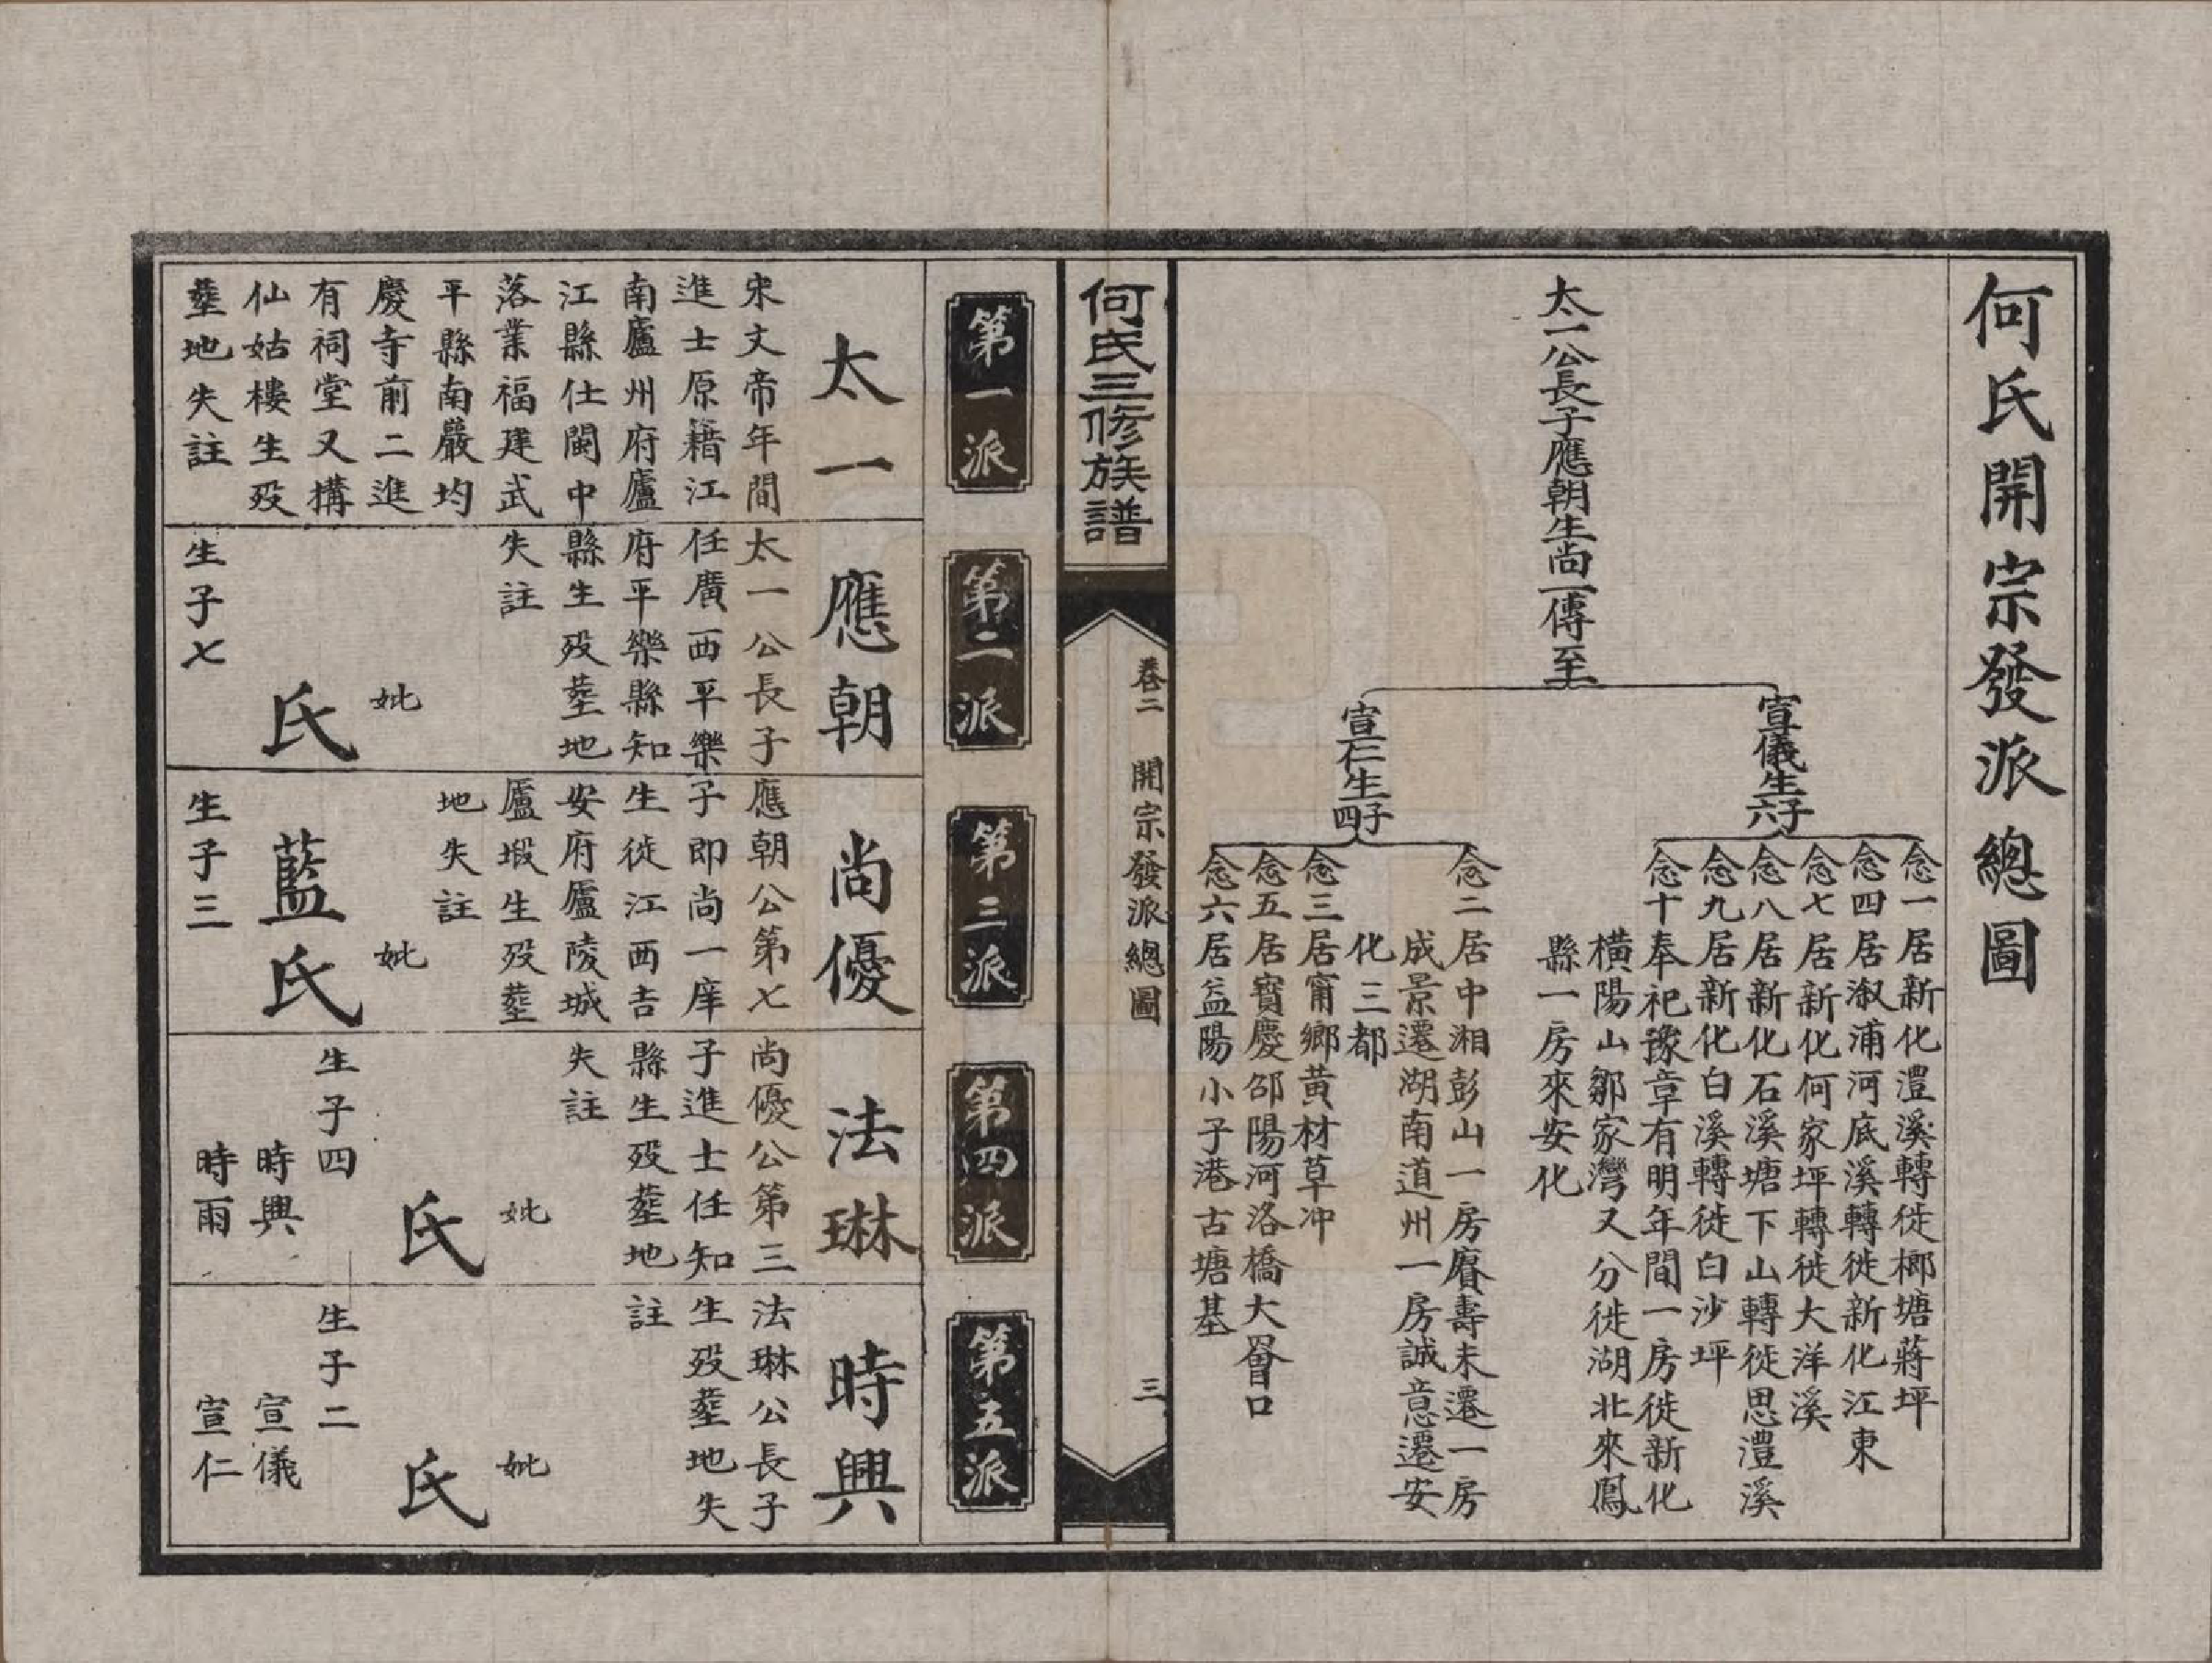 何氏開宗發派總圖
太一公長子應朝生尚一傳至
宣儀生六子
念一居新化澧溪轉徙榔塘蔣坪
念四居溆浦河底溪轉徙新化江東
念七居新化何家坪轉徙大洋溪
念八居新化石溪塘下山轉徙思澧溪
念九居新化白溪轉徙白沙坪
念十奉祀豫章有明年間一房徙新化
橫陽山鄒家灣又分徙湖北來鳳
縣一房來安化
宣仁生四子
念二居中湘彭山一房賡壽未遷一房
成景遷湖南道州一房誠意遷安
化三都
念三居甯鄉黃材草冲
念五居寶慶邵陽河洛橋大罾口
念六居益陽小子港古塘基
何氏三修族譜
卷二 開宗發派總圖
三
第一派
第二派
第三派
第四派
第五派
太一
宋文帝年間
進士原籍江
南廬州府廬
江縣仕閩中
落業福建武
平縣南嚴均
慶寺前二進
有祠堂又構
仙姑樓生歿
塟地失註
應朝
太一公長子
任廣西平樂
府平樂縣知
縣生歿塟地
失註
妣
氏
生子七
尚優
應朝公第七
子即尚一庠
生徙江西吉
安府廬陵城
廬塅生歿塟
地失註
妣
藍氏
生子三
法琳
尚優公第三
子進士任知
縣生歿塟地
失註
妣
氏
生子四
時興
時雨
時興
法琳公長子
生歿塟地失
註
妣
氏
生子二
宣儀
宣仁